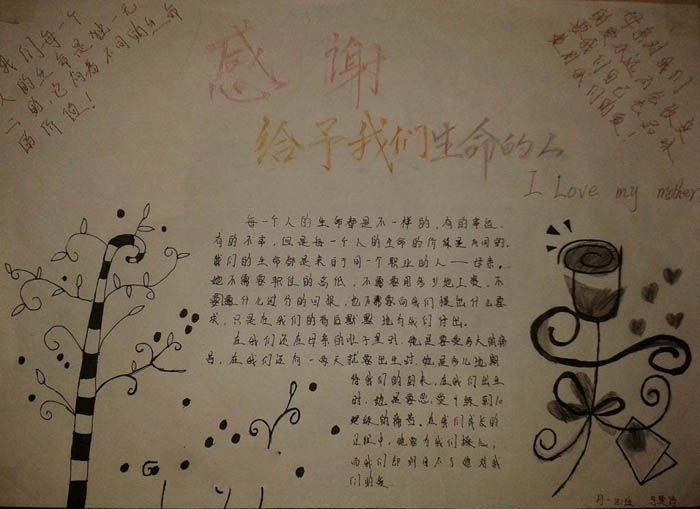 我们每一个
人的生命是独一无
二的,它有着不同的生命
的价值!
感谢
给予我们生命的人
I Love my mother
母亲对我们
的爱永远不会改变
每一个人的生命都是不一样的,有的幸运,
有的不幸,但是每一个人的生命的价值是不同的,
我们的生命都是来自于同一个职业的人——母亲。
她不需要职位的高低,不需要用多少地工资,不
需要什么过分的回报,也不需要向我们提出什么要
求,只是在我们的背后默默地为我们付出。
在我们还在母亲的肚子里时,她是要受多大
在我们还有一两天就要出生时,她是多么地期
待我们的到来,在我们出生
时,她是要忍受
的痛苦。在我们成长的
过程中,她要为我们操心,
而我们却列
们的爱。